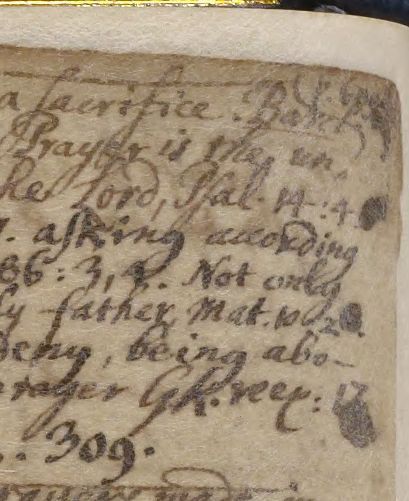 a sacrifice. Bak
Prayer is the un-
he Lord, Psal. 14:4.
. asking according
86:3,4. Not only
ly father, Mat. 10.28.
deny, being abo-
rayer Gk. : 17
. 309.
made in